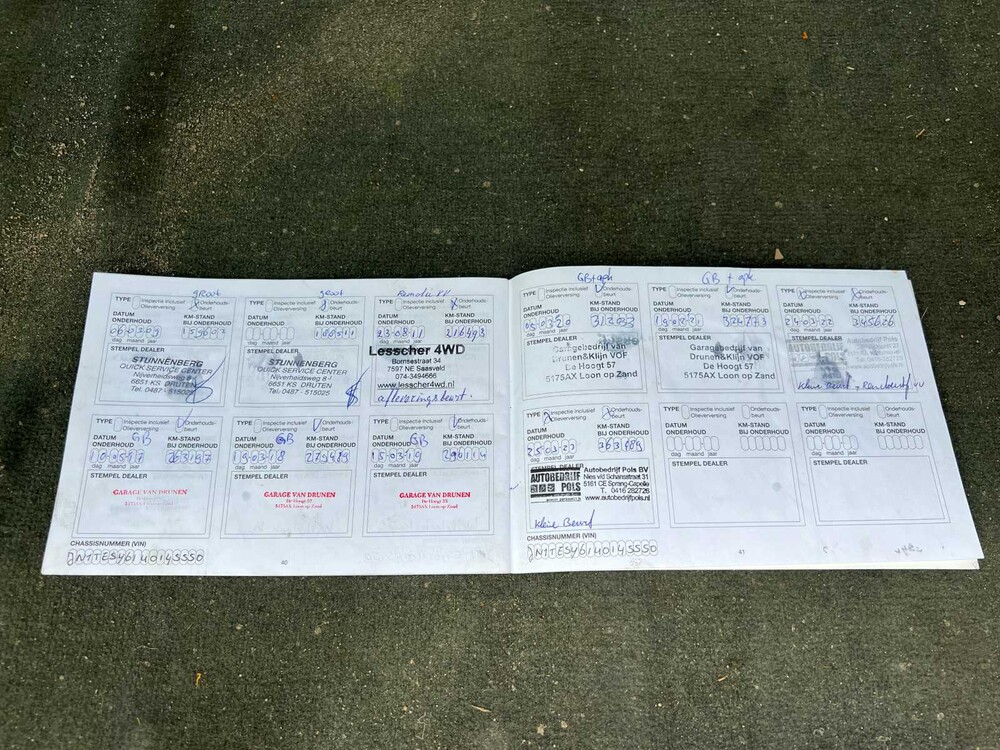 groot
TYPE Inspectie inclusief Olieverversing Onderhouds-beurt
DATUM ONDERHOUD KM-STAND BIJ ONDERHOUD
060309
dag maand jaar
STEMPEL DEALER
STUNNENBERG
QUICK SERVICE CENTER
Nijverheidsweg
6651 KS DRUTEN
Tel. 0487 - 515025
groot
TYPE Inspectie inclusief Olieverversing Onderhouds-beurt
DATUM ONDERHOUD KM-STAND BIJ ONDERHOUD
dag maand jaar
STEMPEL DEALER
STUNNENBERG
QUICK SERVICE CENTER
Nijverheidsweg 8
6651 KS DRUTEN
Tel. 0487 - 515025
TYPE Inspectie inclusief Olieverversing Onderhouds-beurt
DATUM ONDERHOUD KM-STAND BIJ ONDERHOUD
230811 216493
dag maand jaar
Lesscher 4WD
Bornsestraat 34
7597 NE Saasveld
074-3494666
www.lesscher4wd.nl
afleveringsbeurt.
TYPE Inspectie inclusief Olieverversing Onderhouds-beurt
DATUM ONDERHOUD GB KM-STAND BIJ ONDERHOUD
263197
dag maand jaar
STEMPEL DEALER
GARAGE VAN DRUNEN
5175AX Loon op Zand
TYPE Inspectie inclusief Olieverversing Onderhouds-beurt
DATUM ONDERHOUD GB KM-STAND BIJ ONDERHOUD
190318 279479
dag maand jaar
STEMPEL DEALER
GARAGE VAN DRUNEN
De Hoogt 57
5175AX Loon op Zand
TYPE Inspectie inclusief Olieverversing Onderhouds-beurt
DATUM ONDERHOUD GB KM-STAND BIJ ONDERHOUD
150319 296114
dag maand jaar
STEMPEL DEALER
GARAGE VAN DRUNEN
De Hoogt 57
5175AX Loon op Zand
CHASSISNUMMER (VIN)
40
GB+apk
TYPE Inspectie inclusief Olieverversing Onderhouds-beurt
DATUM ONDERHOUD KM-STAND BIJ ONDERHOUD
050320
dag maand jaar
STEMPEL DEALER
Garagebedrijf van
Drunen&Klijn VOF
De Hoogt 57
5175AX Loon op Zand
GB + apk
TYPE Inspectie inclusief Olieverversing Onderhouds-beurt
DATUM ONDERHOUD KM-STAND BIJ ONDERHOUD
324773
dag maand jaar
STEMPEL DEALER
Garagebedrijf van
Drunen&Klijn VOF
De Hoogt 57
5175AX Loon op Zand
TYPE Inspectie inclusief Olieverversing Onderhouds-beurt
DATUM ONDERHOUD KM-STAND BIJ ONDERHOUD
240322 345626
dag maand jaar
STEMPEL DEALER
AUTOBEDRIJF
Kleine Beurt +
TYPE Inspectie inclusief Olieverversing Onderhouds-beurt
DATUM ONDERHOUD KM-STAND BIJ ONDERHOUD
dag maand jaar
STEMPEL DEALER
AUTOBEDRIJF POLS
Autobedrijf Pols BV
Nies v/d Schansstraat 31
5161 CE Sprang-Capelle
T. 0416 282726
www.autobedrijfpols.nl
Kleine Beurt
TYPE Inspectie inclusief Olieverversing Onderhouds-beurt
DATUM ONDERHOUD KM-STAND BIJ ONDERHOUD
dag maand jaar
STEMPEL DEALER
TYPE Inspectie inclusief Olieverversing Onderhouds-beurt
DATUM ONDERHOUD KM-STAND BIJ ONDERHOUD
dag maand jaar
STEMPEL DEALER
CHASSISNUMMER (VIN)
41